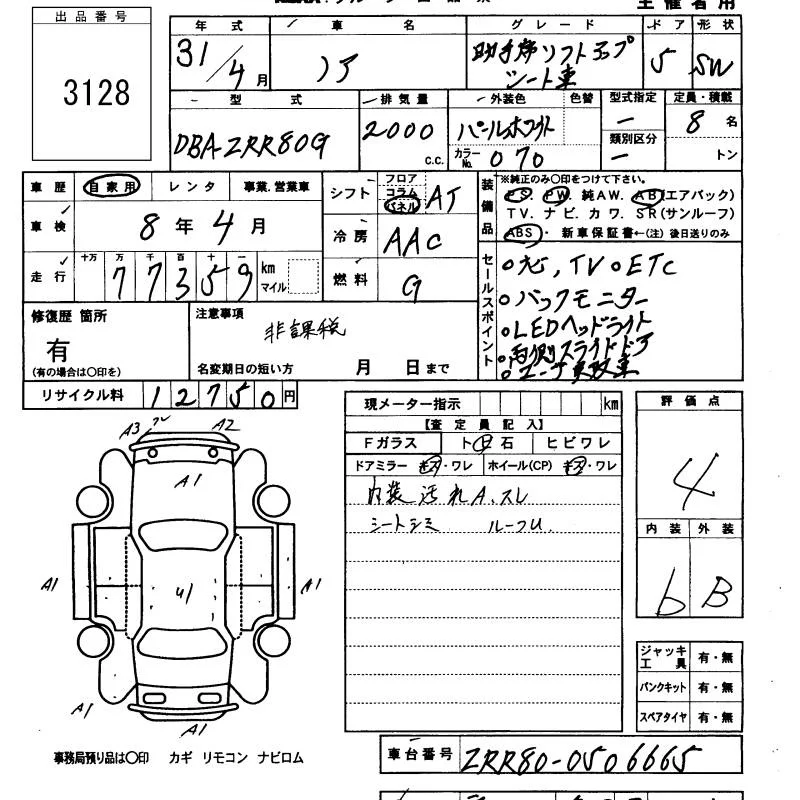 出品番号
3128
年式
31/4月
車名
ノア
グレード
助手席リフトアップ
シート車
ドア
5
形状
SW
型式
DBA-ZRR80G
排気量
2000
c.c.
外装色
パールホワイト
色替
カラーNo.
070
型式指定
—
類別区分
—
定員・積載
8名
トン
車歴
自家用
レンタ
事業.営業車
車検
8年4月
走行
十万 万 千 百 十 一
77359
km
マイル
シフト
フロア
コラム
パネル
AT
冷房
AAC
燃料
G
装備品
※純正のみ〇印をつけて下さい。
PS. PW. 純AW. AB(エアバック)
TV. ナビ. カワ. SR(サンルーフ)
ABS・ 新車保証書←(注) 後日送りのみ
セールスポイント
TV 。ETC
。バックモニター
。LEDヘッドライト
。両側スライドドア
修復歴 箇所
有
(有の場合は〇印を)
注意事項
非課税
名変期日の短い方
月 日まで
リサイクル料
12750円
現メーター指示
km
【査定員記入】
Fガラス
ト 石
ヒビワレ
ドアミラー
キズ・ワレ
ホイール(CP)
キズ・ワレ
内装 汚れA.スレ
シートシミ ルーフU
評価点
4
内装
b
外装
B
A3
A2
A1
A1
U1
A1
A1
A1
ジャッキ
工具
有・無
パンクキット
有・無
スペアタイヤ
有・無
事務局預り品は〇印 カギ リモコン ナビロム
車台番号
ZRR80-0506665